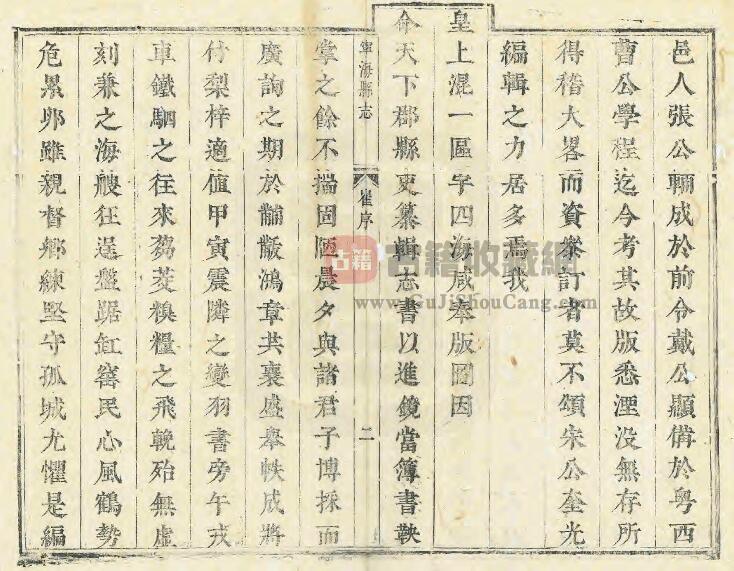 邑人張公輛成於前令戴公顯備於粵西
曹公學程迄今考其故版悉湮没無存所
得稽大畧而資衆訂者莫不頌宋公奎光
編輯之力居多焉我
皇上混一區宇四海咸奉版圖因
命天下郡縣更纂輯志書以進鏡當簿書鞅
寧海縣志
崔序
二
掌之餘不揣固陋晨夕與諸君子博採而
廣詢之期於黼黻鴻章共襄盛舉帙成將
付梨梓適值甲寅震隣之變羽書旁午戎
車鐵駟之往來芻茭糗糧之飛輓殆無虛
刻兼之海艘狂逞盤踞缸窰民心風鶴勢
危累卵雖親督鄉練堅守孤城尤懼是編
古籍
古籍收藏網
www.GuJiShouCang.com